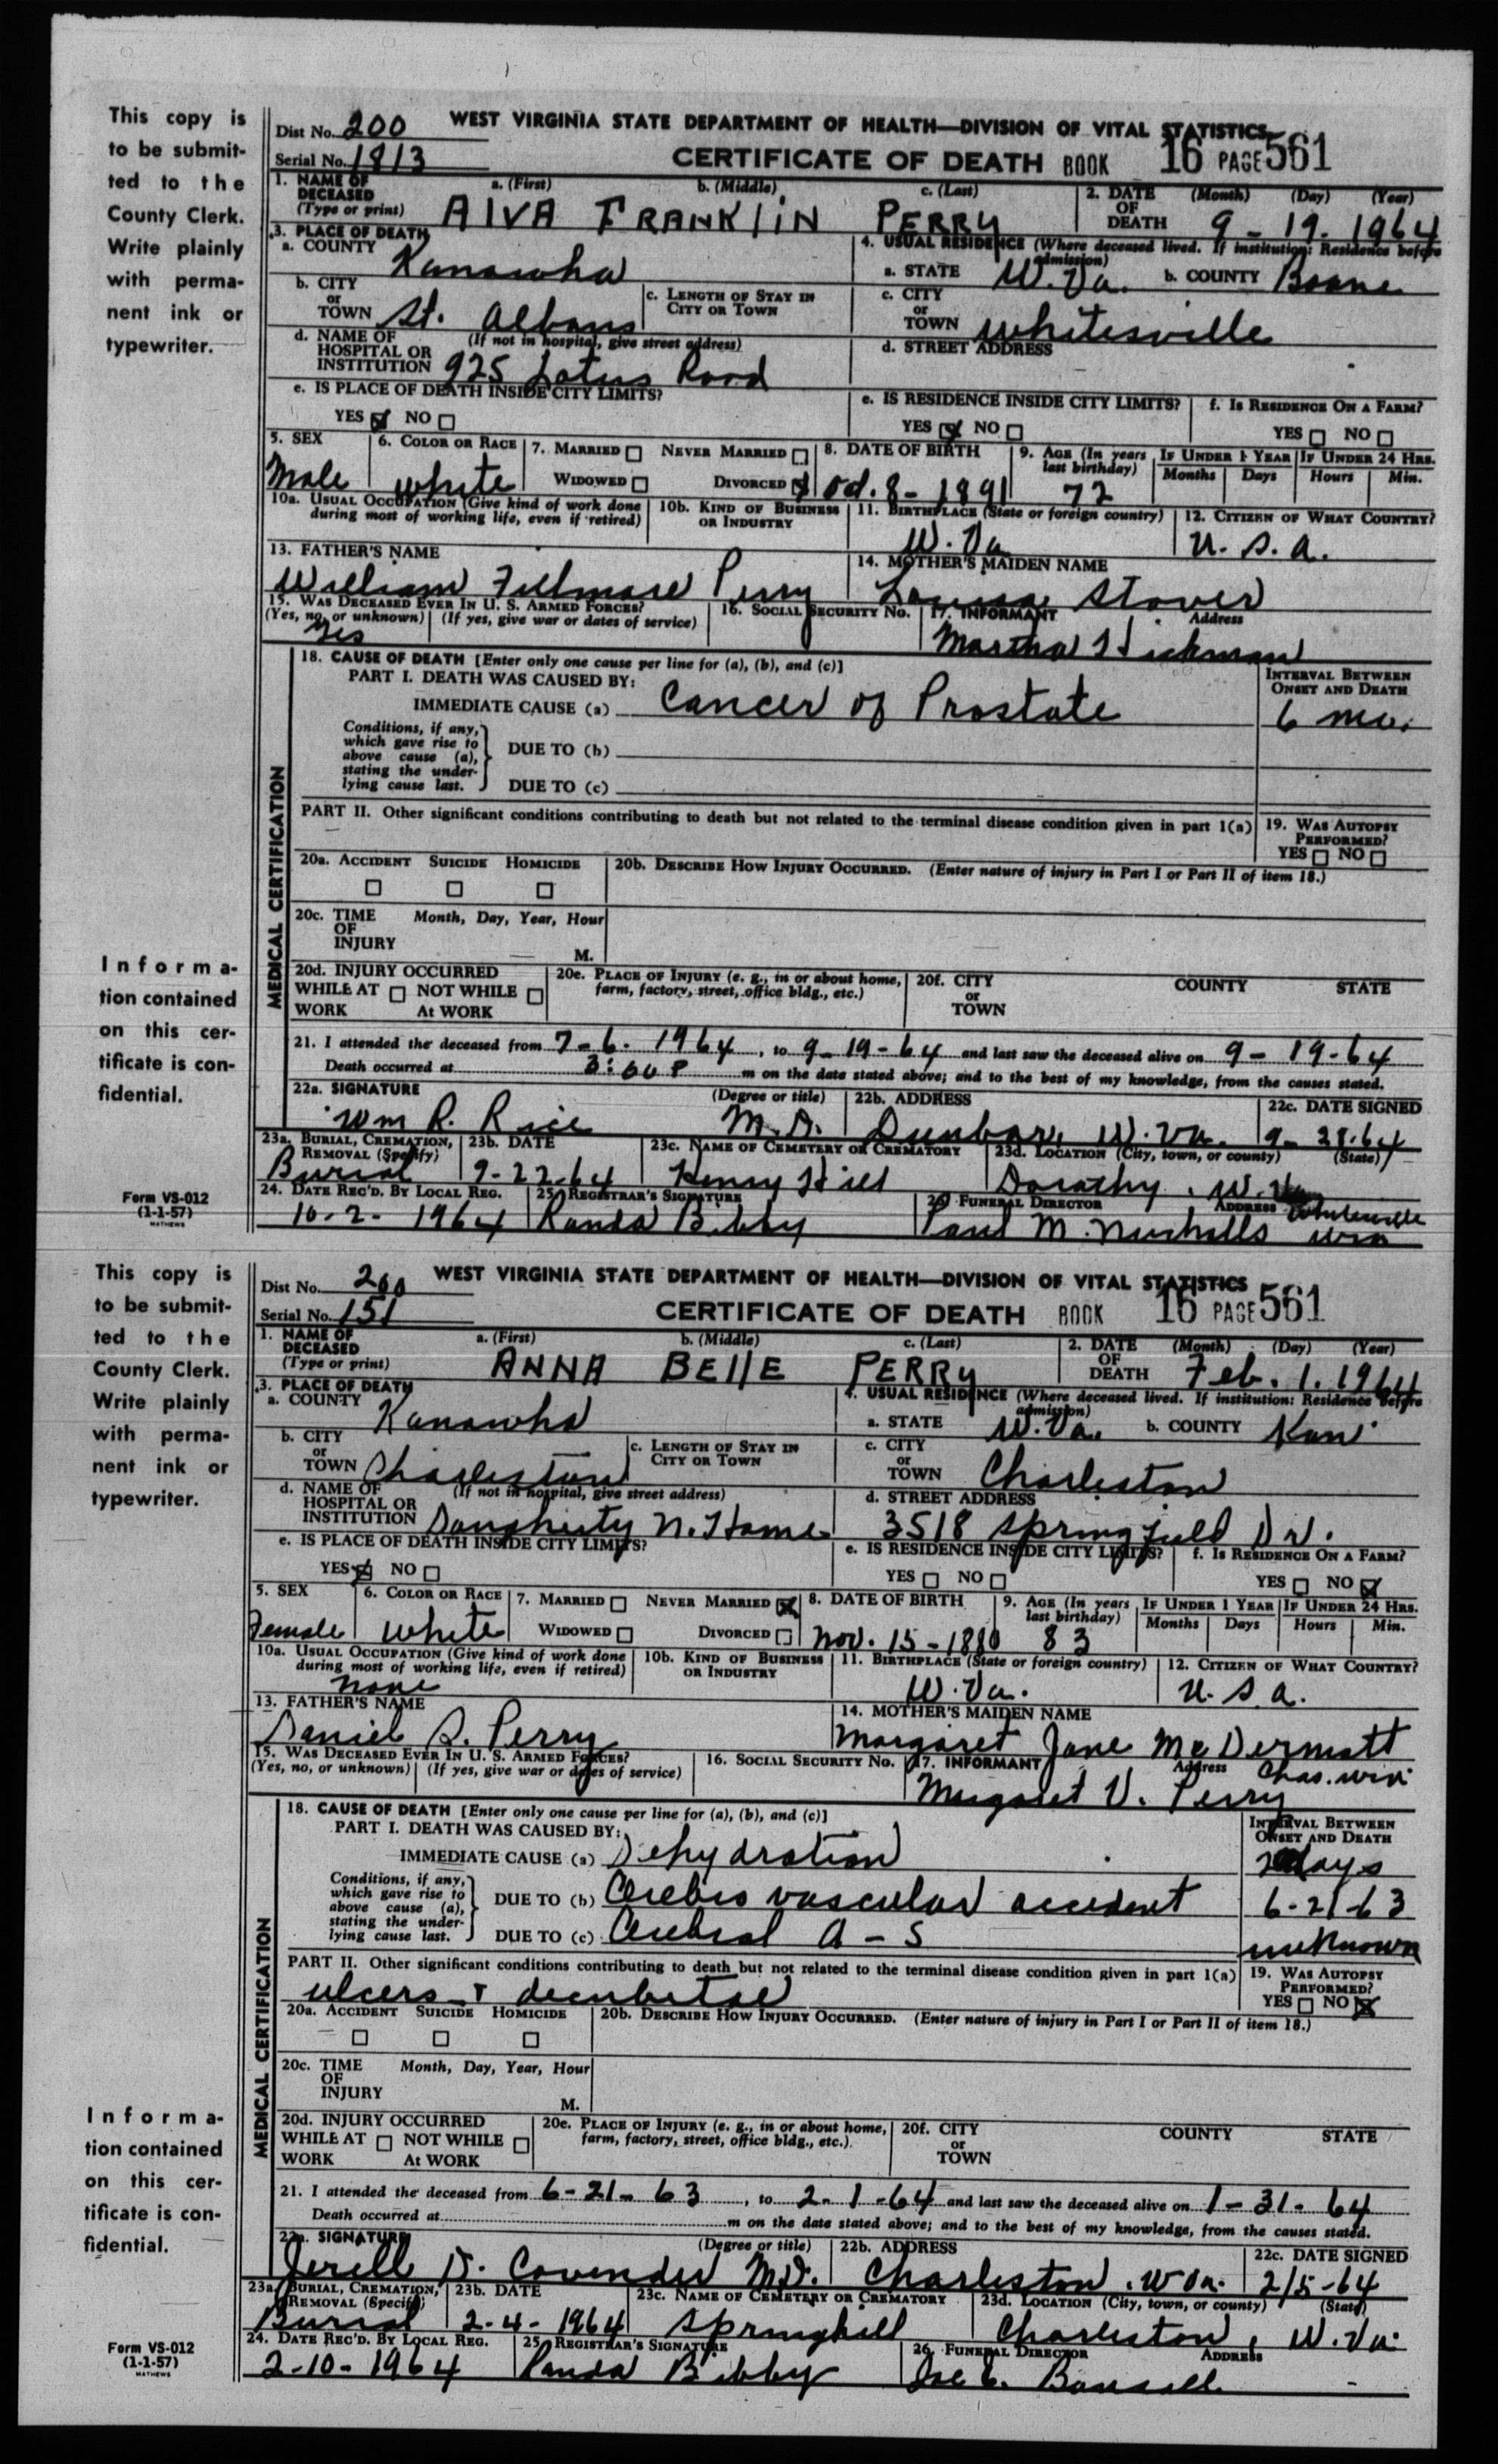 This copy is
to be submit-
ted to the
County Clerk.
Write plainly
with perma-
nent ink or
typewriter.
Informa-
tion contained
on this cer-
tificate is con-
fidential.
Form VS-012
(1-1-57)
MATHEWS
Dist No. 200 WEST VIRGINIA STATE DEPARTMENT OF HEALTH—DIVISION OF VITAL STATISTICS
Serial No. 1813 CERTIFICATE OF DEATH BOOK 16 PAGE 561
1. NAME OF DECEASED (Type or print) a. (First) b. (Middle) c. (Last) 2. DATE OF DEATH (Month) (Day) (Year)
AlVA FRANKLiN PERRY 9-19-1964
3. PLACE OF DEATH 4. USUAL RESIDENCE (Where deceased lived. If institution: Residence before admission)
a. COUNTY Kanawha a. STATE W.Va. b. COUNTY Boone
b. CITY or TOWN St. Albans c. LENGTH OF STAY IN CITY OR TOWN c. CITY or TOWN Whitesville
d. NAME OF HOSPITAL OR INSTITUTION (If not in hospital, give street address) 925 Lotus Road d. STREET ADDRESS
e. IS PLACE OF DEATH INSIDE CITY LIMITS? e. IS RESIDENCE INSIDE CITY LIMITS? f. IS RESIDENCE ON A FARM?
YES NO YES NO YES NO
5. SEX 6. COLOR OR RACE 7. MARRIED NEVER MARRIED 8. DATE OF BIRTH 9. AGE (In years last birthday) IF UNDER 1 YEAR IF UNDER 24 HRS.
Male White WIDOWED DIVORCED Oct. 8-1891 72 Months Days Hours Min.
10a. USUAL OCCUPATION (Give kind of work done during most of working life, even if retired) 10b. KIND OF BUSINESS OR INDUSTRY 11. BIRTHPLACE (State or foreign country) 12. CITIZEN OF WHAT COUNTRY?
W.Va U.S.A.
13. FATHER'S NAME 14. MOTHER'S MAIDEN NAME
William Fillmore Perry Louisa Stover
15. WAS DECEASED EVER IN U. S. ARMED FORCES? 16. SOCIAL SECURITY NO. 17. INFORMANT Address
(Yes, no, or unknown) (If yes, give war or dates of service)
Yes Martha Hickman
18. CAUSE OF DEATH [Enter only one cause per line for (a), (b), and (c)]
PART I. DEATH WAS CAUSED BY: INTERVAL BETWEEN ONSET AND DEATH
IMMEDIATE CAUSE (a) Cancer of Prostate 6 mo.
Conditions, if any, which gave rise to above cause (a), stating the under-lying cause last. DUE TO (b)
DUE TO (c)
PART II. Other significant conditions contributing to death but not related to the terminal disease condition given in part 1(a) 19. WAS AUTOPSY PERFORMED?
YES NO
20a. ACCIDENT SUICIDE HOMICIDE 20b. DESCRIBE HOW INJURY OCCURRED. (Enter nature of injury in Part I or Part II of item 18.)
20c. TIME OF INJURY Month, Day, Year, Hour M.
20d. INJURY OCCURRED 20e. PLACE OF INJURY (e. g., in or about home, farm, factory, street, office bldg., etc.) 20f. CITY or TOWN COUNTY STATE
WHILE AT WORK NOT WHILE At WORK
MEDICAL CERTIFICATION
21. I attended the deceased from 7-6-1964, to 9-19-64 and last saw the deceased alive on 9-19-64
Death occurred at 3:00 P m on the date stated above; and to the best of my knowledge, from the causes stated.
22a. SIGNATURE (Degree or title) 22b. ADDRESS 22c. DATE SIGNED
Wm R. Rice M.D. Dunbar, W.Va.
23a. BURIAL, CREMATION, REMOVAL (Specify) 23b. DATE 23c. NAME OF CEMETERY OR CREMATORY 23d. LOCATION (City, town, or county) (State)
Burial 9-22-64 Henry Hill Dorothy, W.Va
24. DATE REC'D. BY LOCAL REG. 25. REGISTRAR'S SIGNATURE 26. FUNERAL DIRECTOR ADDRESS
10-2-1964 Bibby Paul M. Whitesville WVa
This copy is
to be submit-
ted to the
County Clerk.
Write plainly
with perma-
nent ink or
typewriter.
Informa-
tion contained
on this cer-
tificate is con-
fidential.
Form VS-012
(1-1-57)
MATHEWS
Dist No. 200 WEST VIRGINIA STATE DEPARTMENT OF HEALTH—DIVISION OF VITAL STATISTICS
Serial No. 151 CERTIFICATE OF DEATH BOOK 16 PAGE 561
1. NAME OF DECEASED (Type or print) a. (First) b. (Middle) c. (Last) 2. DATE OF DEATH (Month) (Day) (Year)
ANNA BEllE PERRY Feb. 1. 1964
3. PLACE OF DEATH 4. USUAL RESIDENCE (Where deceased lived. If institution: Residence before admission)
a. COUNTY Kanawha a. STATE W.Va. b. COUNTY Kan
b. CITY or TOWN Charleston c. LENGTH OF STAY IN CITY OR TOWN c. CITY or TOWN Charleston
d. NAME OF HOSPITAL OR INSTITUTION (If not in hospital, give street address) Daugherty N. Home d. STREET ADDRESS 3518 Springfield Dr.
e. IS PLACE OF DEATH INSIDE CITY LIMITS? e. IS RESIDENCE INSIDE CITY LIMITS? f. IS RESIDENCE ON A FARM?
YES NO YES NO YES NO
5. SEX 6. COLOR OR RACE 7. MARRIED NEVER MARRIED 8. DATE OF BIRTH 9. AGE (In years last birthday) IF UNDER 1 YEAR IF UNDER 24 HRS.
Female White WIDOWED DIVORCED Nov. 15-1880 83 Months Days Hours Min.
10a. USUAL OCCUPATION (Give kind of work done during most of working life, even if retired) 10b. KIND OF BUSINESS OR INDUSTRY 11. BIRTHPLACE (State or foreign country) 12. CITIZEN OF WHAT COUNTRY?
none W.Va. U.S.A.
13. FATHER'S NAME 14. MOTHER'S MAIDEN NAME
Daniel S. Perry Margaret Jane McDermott
15. WAS DECEASED EVER IN U. S. ARMED FORCES? 16. SOCIAL SECURITY NO. 17. INFORMANT Address
(Yes, no, or unknown) (If yes, give war or dates of service)
Margaret V. Perry Chas. WVa
18. CAUSE OF DEATH [Enter only one cause per line for (a), (b), and (c)]
PART I. DEATH WAS CAUSED BY: INTERVAL BETWEEN ONSET AND DEATH
IMMEDIATE CAUSE (a) Dehydration days
Conditions, if any, which gave rise to above cause (a), stating the under-lying cause last. DUE TO (b) Cerebro vascular accident 6-21-63
DUE TO (c) Cerebral A-S unknown
PART II. Other significant conditions contributing to death but not related to the terminal disease condition given in part 1(a) 19. WAS AUTOPSY PERFORMED?
ulcers YES NO
20a. ACCIDENT SUICIDE HOMICIDE 20b. DESCRIBE HOW INJURY OCCURRED. (Enter nature of injury in Part I or Part II of item 18.)
20c. TIME OF INJURY Month, Day, Year, Hour M.
20d. INJURY OCCURRED 20e. PLACE OF INJURY (e. g., in or about home, farm, factory, street, office bldg., etc.) 20f. CITY or TOWN COUNTY STATE
WHILE AT WORK NOT WHILE At WORK
MEDICAL CERTIFICATION
21. I attended the deceased from 6-21-63, to 2-1-64 and last saw the deceased alive on 1-31-64
Death occurred at m on the date stated above; and to the best of my knowledge, from the causes stated.
22a. SIGNATURE (Degree or title) 22b. ADDRESS 22c. DATE SIGNED
Jerell D. Cavender M.D. Charleston, W Va. 2/5-64
23a. BURIAL, CREMATION, REMOVAL (Specify) 23b. DATE 23c. NAME OF CEMETERY OR CREMATORY 23d. LOCATION (City, town, or county) (State)
Burial 2-4-1964 Springhill Charleston, W.Va.
24. DATE REC'D. BY LOCAL REG. 25. REGISTRAR'S SIGNATURE 26. FUNERAL DIRECTOR ADDRESS
2-10-1964 Bibby